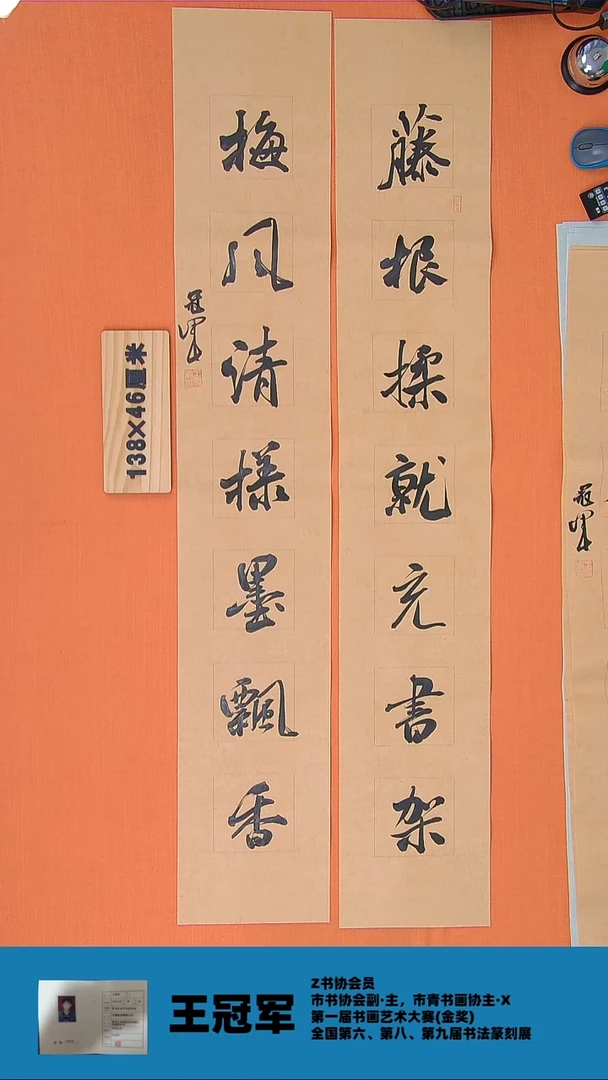 藤根揉就充書架
梅风请様墨飄香
冠军
138×46厘米
冠军
王冠军
Z书协会员
市书协会副·主，市青书画协主·X
第一届书画艺术大赛(金奖)
全国第六、第八、第九届书法篆刻展